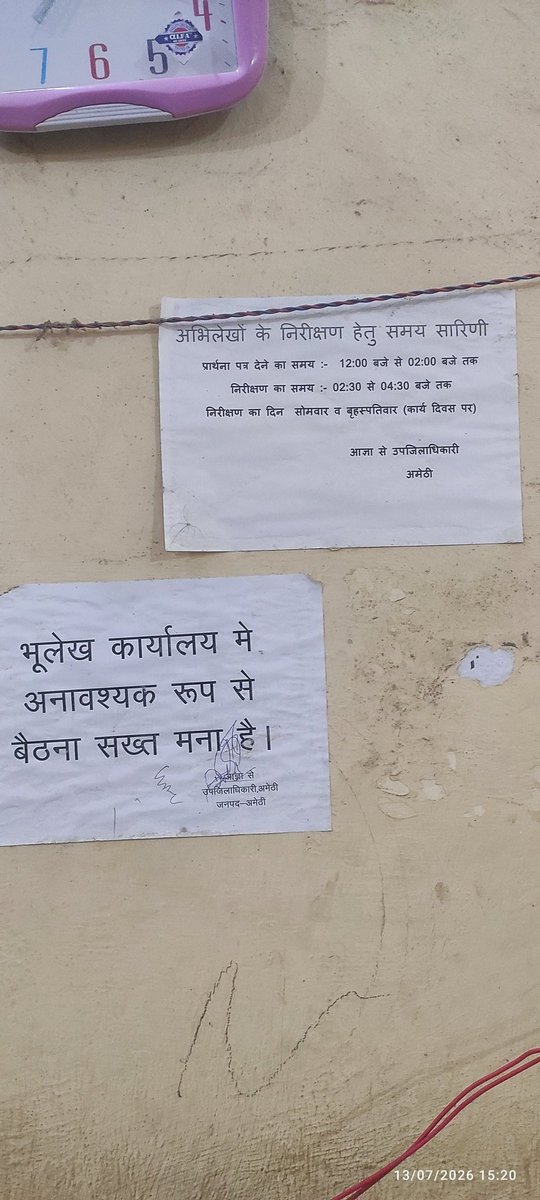 4
5
6
7
अभिलेखों के निरीक्षण हेतु समय सारिणी
प्रार्थना पत्र देने का समय :- 12:00 बजे से 02:00 बजे तक
निरीक्षण का समय :- 02:30 से 04:30 बजे तक
निरीक्षण का दिन सोमवार व बृहस्पतिवार (कार्य दिवस पर)
आज्ञा से उपजिलाधिकारी
अमेठी
भूलेख कार्यालय मे
अनावश्यक रूप से
बैठना सख्त मना है।
आज्ञा से
उपजिलाधिकारी,अमेठी
जनपद-अमेठी
13/07/2026 15:20